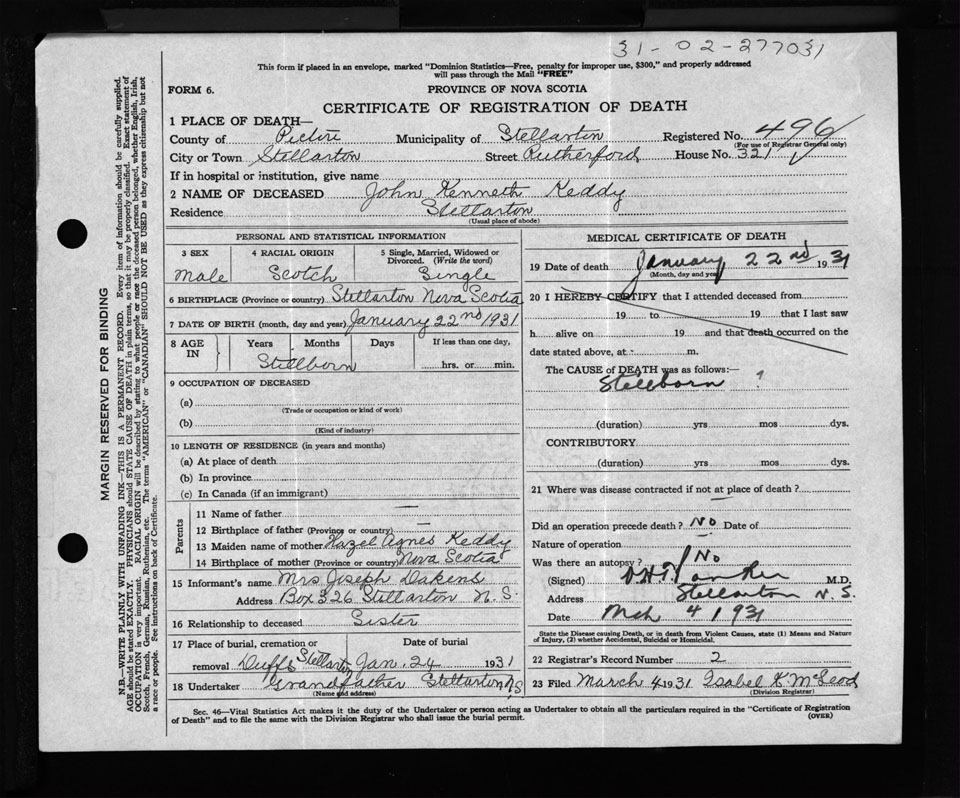 31-02-277031
This form if placed in an envelope, marked "Dominion Statistics—Free, penalty for improper use, $300," and properly addressed
will pass through the Mail "FREE"
FORM 6.
PROVINCE OF NOVA SCOTIA
CERTIFICATE OF REGISTRATION OF DEATH
1 PLACE OF DEATH—
County of Pictou Municipality of Stellarton Registered No. 496
(For use of Registrar General only)
City or Town Stellarton Street Rutherford House No. 321
If in hospital or institution, give name
2 NAME OF DECEASED John Kenneth Keddy
Residence Stellarton
(Usual place of abode)
PERSONAL AND STATISTICAL INFORMATION
3 SEX 4 RACIAL ORIGIN 5 Single, Married, Widowed or
Divorced. (Write the word)
Male Scotch Single
6 BIRTHPLACE (Province or country) Stellarton Nova Scotia
7 DATE OF BIRTH (month, day and year) January 22nd 1931
8 AGE IN Years Months Days If less than one day,
Stillborn hrs. or min.
9 OCCUPATION OF DECEASED
(a)
(Trade or occupation or kind of work)
(b)
(Kind of industry)
10 LENGTH OF RESIDENCE (in years and months)
(a) At place of death
(b) In province
(c) In Canada (if an immigrant)
Parents
11 Name of father —
12 Birthplace of father (Province or country) —
13 Maiden name of mother Hazel Agnes Keddy
14 Birthplace of mother (Province or country) Nova Scotia
15 Informant's name Mrs Joseph Dakens
Address Box 326 Stellarton N.S.
16 Relationship to deceased Sister
17 Place of burial, cremation or Date of burial
removal Duffs Stellarton Jan. 24 1931
18 Undertaker Grandfather Stellarton N.S
(Name and address)
MEDICAL CERTIFICATE OF DEATH
19 Date of death January 22nd 1931
(Month, day and year)
20 I HEREBY CERTIFY that I attended deceased from
19 to 19 that I last saw
h alive on 19 and that death occurred on the
date stated above, at m.
The CAUSE of DEATH was as follows:—
Stillborn ?
(duration) yrs mos dys.
CONTRIBUTORY
(duration) yrs mos dys.
21 Where was disease contracted if not at place of death ? —
Did an operation precede death ? No Date of
Nature of operation
Was there an autopsy ? No
(Signed) M.D.
Address Stellarton N.S.
Date Mch 4 1931
State the Disease causing Death, or in death from Violent Causes, state (1) Means and Nature
of Injury, (2) whether Accidental, Suicidal or Homicidal.
22 Registrar's Record Number 2
23 Filed March 4 1931 Isabel K. McLeod
(Division Registrar)
Sec. 46—Vital Statistics Act makes it the duty of the Undertaker or person acting as Undertaker to obtain all the particulars required in the "Certificate of Registration
of Death" and to file the same with the Division Registrar who shall issue the burial permit.
(OVER)
MARGIN RESERVED FOR BINDING
N.B.—WRITE PLAINLY WITH UNFADING INK—THIS IS A PERMANENT RECORD. Every item of information should be carefully supplied.
AGE should be stated EXACTLY. PHYSICIANS should STATE CAUSE OF DEATH in plain terms, so that it may be properly classified. Exact statement of
OCCUPATION is very important. RACIAL ORIGIN will be described by stating to what people or race the deceased person belonged, whether English, Irish,
Scotch, French, German, Russian, Ruthenian, etc. The terms "AMERICAN" or "CANADIAN" SHOULD NOT BE USED as they express citizenship but not
a race or people. See instructions on back of Certificate.